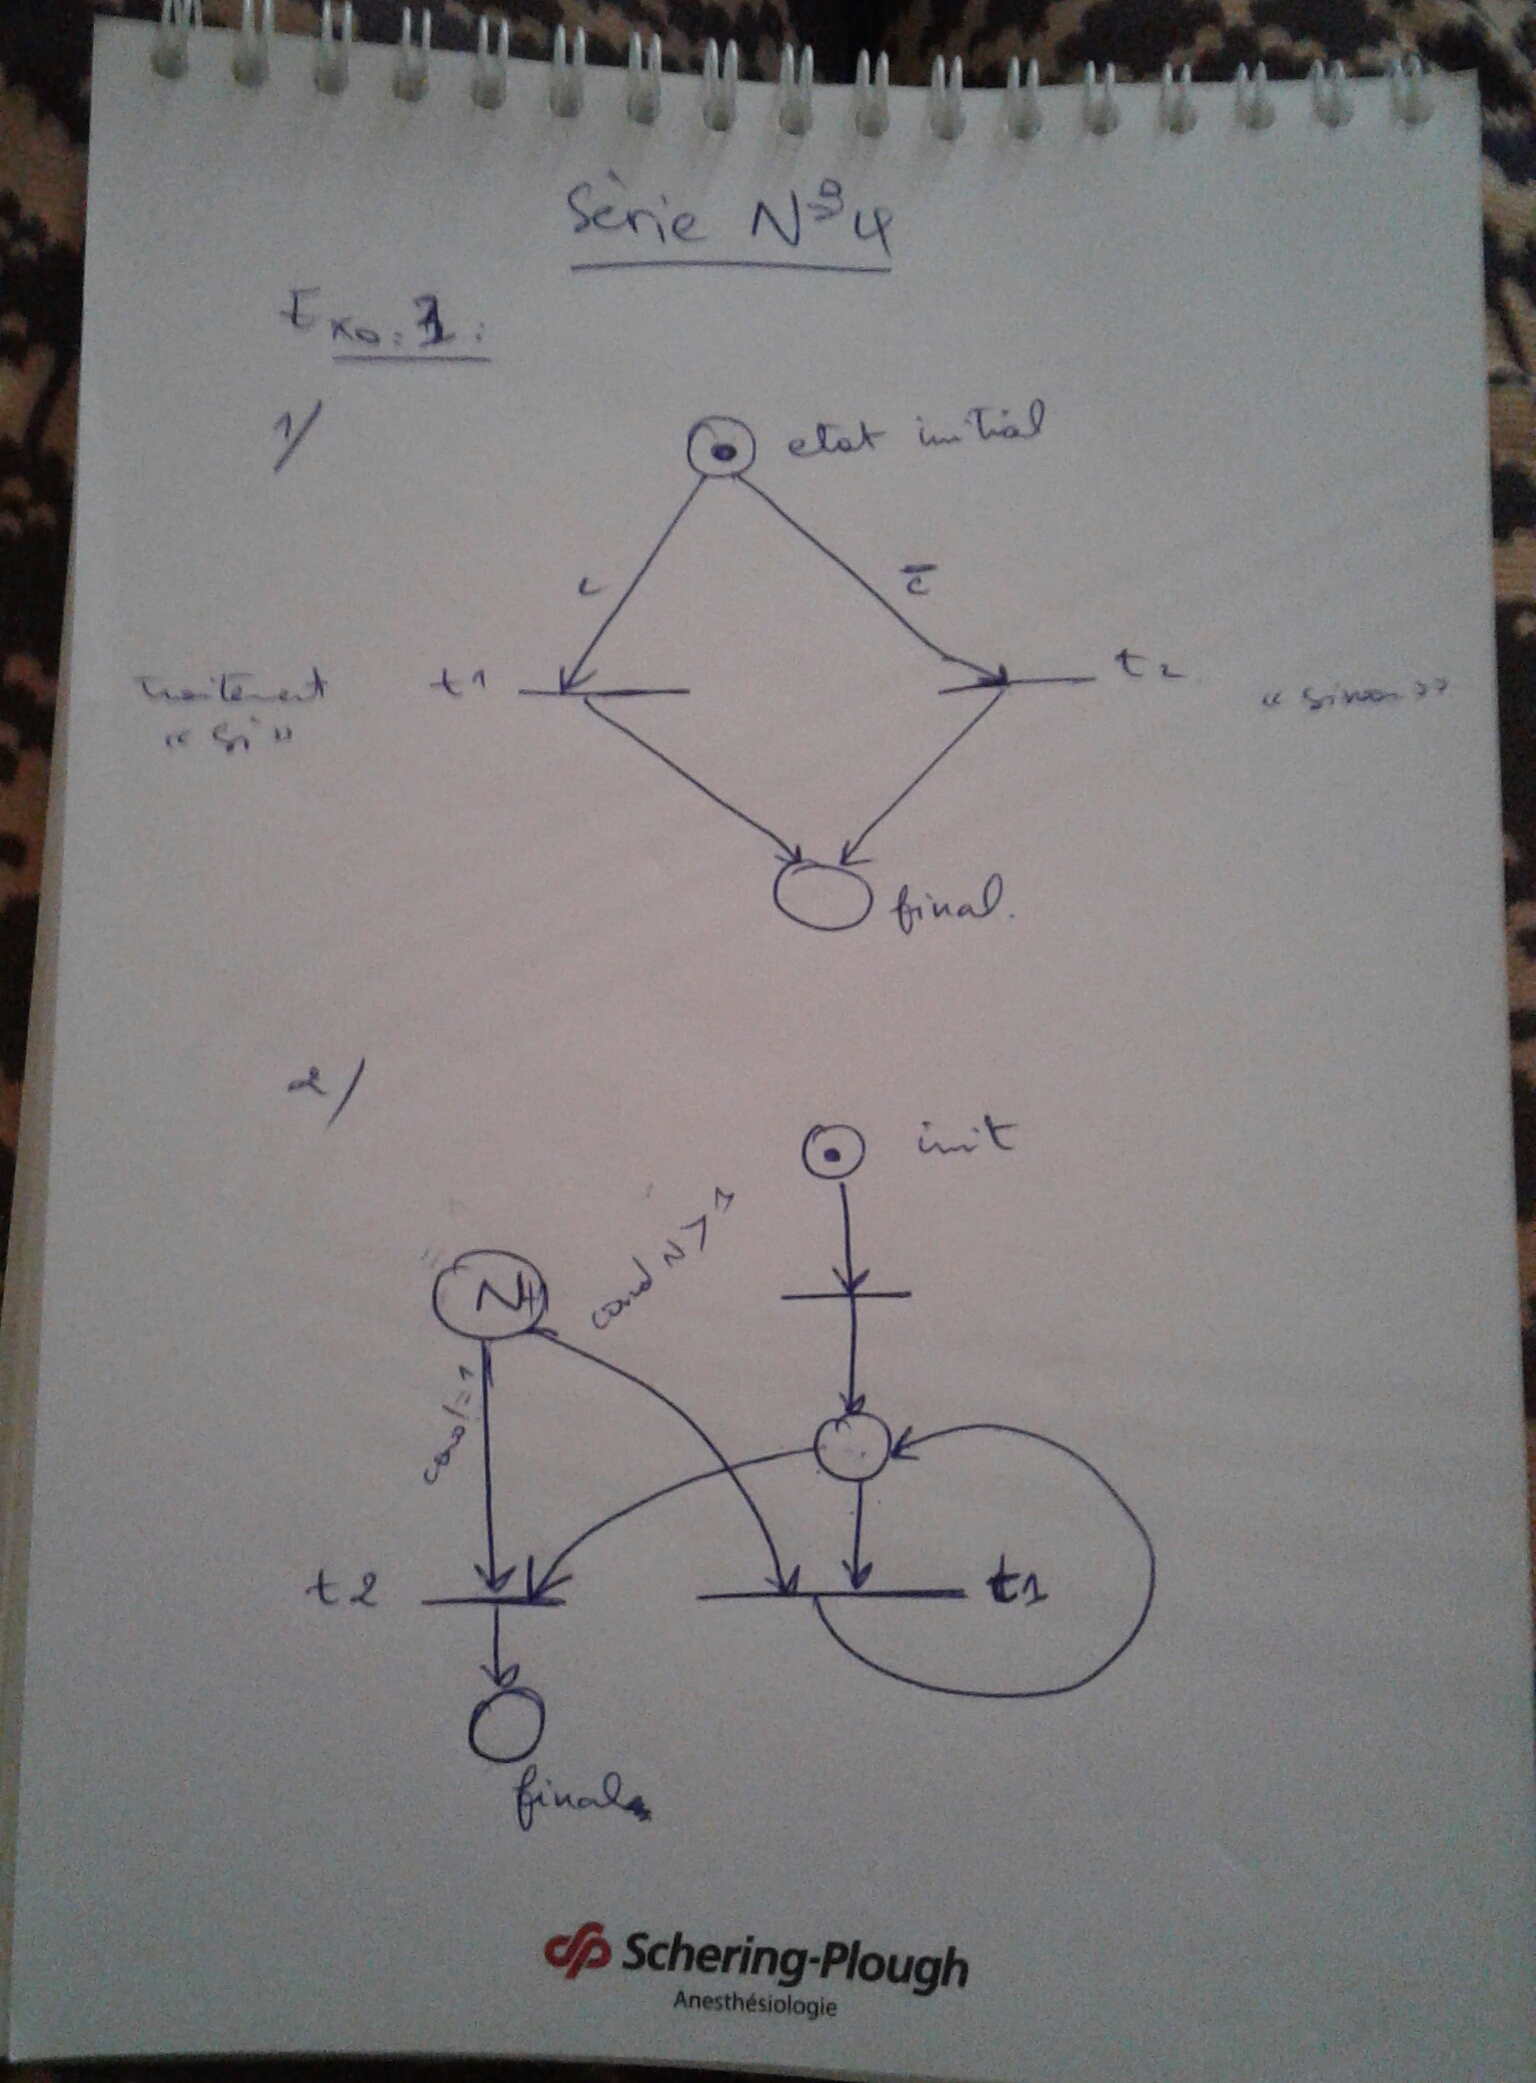 Série N°4
Exo:1:
1/
etat initial
c
c̄
traitement
t1
t2
« Si »
« sinon »
final.
2/
init
cond N>1
cond=1
t2
t1
final
Schering-Plough
Anesthésiologie